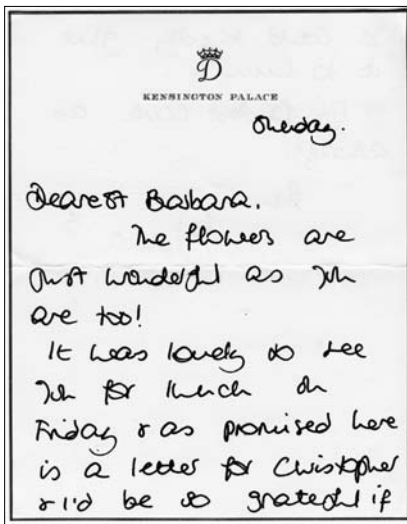 D
KENSINGTON PALACE
Tuesday.
Dearest Barbara.
The flowers are
just wonderful as you
are too!
It was lovely to see
you for lunch on
Friday & as promised here
is a letter for Christopher
& I'd be so grateful if